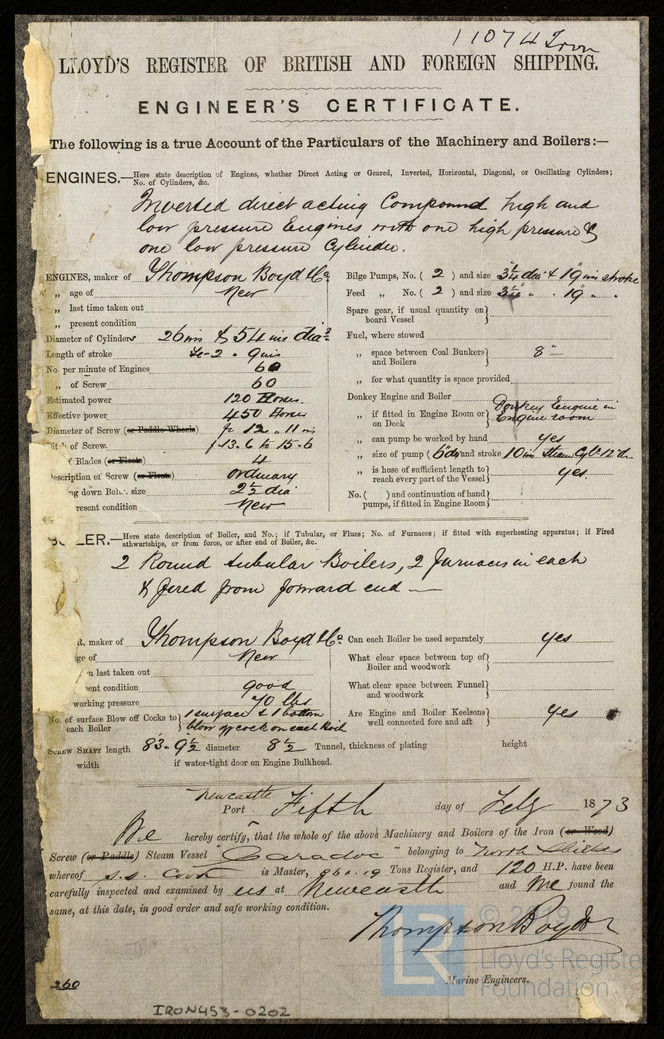 11074 Iron
LLOYD'S REGISTER OF BRITISH AND FOREIGN SHIPPING.
ENGINEER'S CERTIFICATE.
The following is a true Account of the Particulars of the Machinery and Boilers:—
ENGINES.—Here state description of Engines, whether Direct Acting or Geared, Inverted, Horizontal, Diagonal, or Oscillating Cylinders;
No. of Cylinders, &c.
Inverted direct acting Compound high and
low pressure Engines with one high pressure &
one low pressure Cylinder.
ENGINES, maker of Thompson Boyd & Co
„ age of New
„ last time taken out
„ present condition
Diameter of Cylinders 26 ins & 54 ins dia
Length of stroke Ft-2 . 9 ins
No. per minute of Engines 60
„ of Screw 60
Estimated power 120 Horses
Effective power 450 Horses
Diameter of Screw (or Paddle Wheels) ft 12 „ 11 ins
tch of Screw. ft 13.6 to 15.6
f Blades (or Floats) 4
escription of Screw (or Float) ordinary
ng down Bolts, size 2½ dia
resent condition New
Bilge Pumps, No. ( 2 ) and size 3¼ dia & 19 ins stroke
Feed „ No. ( 2 ) and size 3¼ „ . 19 „ .
Spare gear, if usual quantity on
board Vessel
Fuel, where stowed
„ space between Coal Bunkers
and Boilers 8"
„ for what quantity is space provided
Donkey Engine and Boiler
„ if fitted in Engine Room or
on Deck Donkey Engine in
Engine room
„ can pump be worked by hand yes
„ size of pump ( 6 dia ) and stroke 10 ins Steam Cylr 12" dia
„ is hose of sufficient length to
reach every part of the Vessel yes.
No. ( ) and continuation of hand
pumps, if fitted in Engine Room
LER.—Here state description of Boiler, and No.; if Tubular, or Flues; No. of Furnaces; if fitted with superheating apparatus; if Fired
athwartships, or from force, or after end of Boiler, &c.
2 Round tubular Boilers, 2 furnaces in each
& fired from forward end —
R, maker of Thompson Boyd & Co
ge of New
n last taken out
ent condition good
working pressure 70 lbs
No. of surface Blow off Cocks to
each Boiler 1 surface & 1 bottom
blow off cock on each Boil
Can each Boiler be used separately yes
What clear space between top of
Boiler and woodwork
What clear space between Funnel
and woodwork
Are Engine and Boiler Keelsons
well connected fore and aft yes
SCREW SHAFT length 83.9½ diameter 8½ Tunnel, thickness of plating height
width if water-tight door on Engine Bulkhead.
Newcastle
Port Fifth day of Feby 1873
We hereby certify, that the whole of the above Machinery and Boilers of the Iron (or Wood)
Screw (or Paddle) Steam Vessel "Caradoc" belonging to North Shields
whereof S.S. Cook is Master, 960.19 Tons Register, and 120 H.P. have been
carefully inspected and examined by us at Newcastle and We found the
same, at this date, in good order and safe working condition.
Thompson Boyd & Co
Marine Engineers.
260
IRON453-0202
LR
© 2019
Lloyd's Register
Foundation